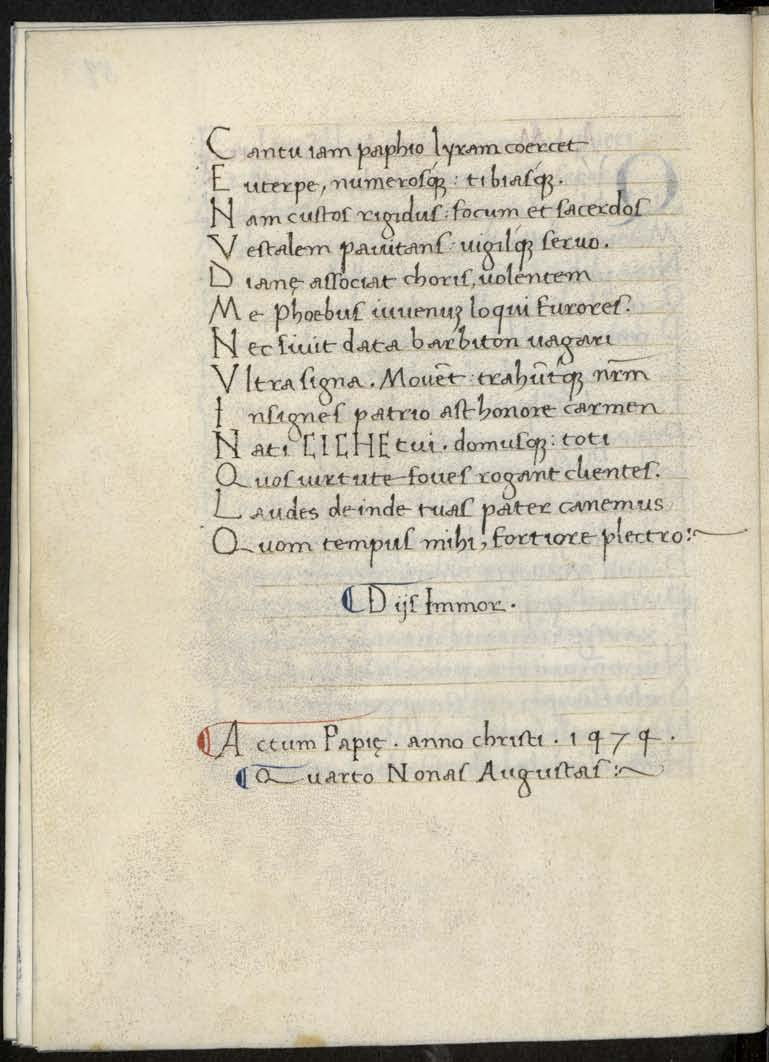 Cantu iam paphio lyram coercet
Euterpe, numerosq̃ꝫ : tibiasq̃ꝫ.
Nam custos rigidus : focum et sacerdos
Vestalem pauitans : uigilq̃ꝫ seruo.
Dianę associat choris, uolentem
Me Phoebus iuuenuꝫ loqui furores.
Nec siuit data barbiton uagari
Vltra signa . Mouẽt : trahũtq̃ꝫ nr̃m
Insignes patrio ast honore carmen
Nati CICHE tui . domusq̃ꝫ : toti
Quos uirtute foues rogant clientes.
Laudes deinde tuas pater canemus
Quom tempus mihi, fortiore plectro:~
Dijs Immor .
Actum Papię . anno christi . 1474 .
Quarto Nonas Augustas :~